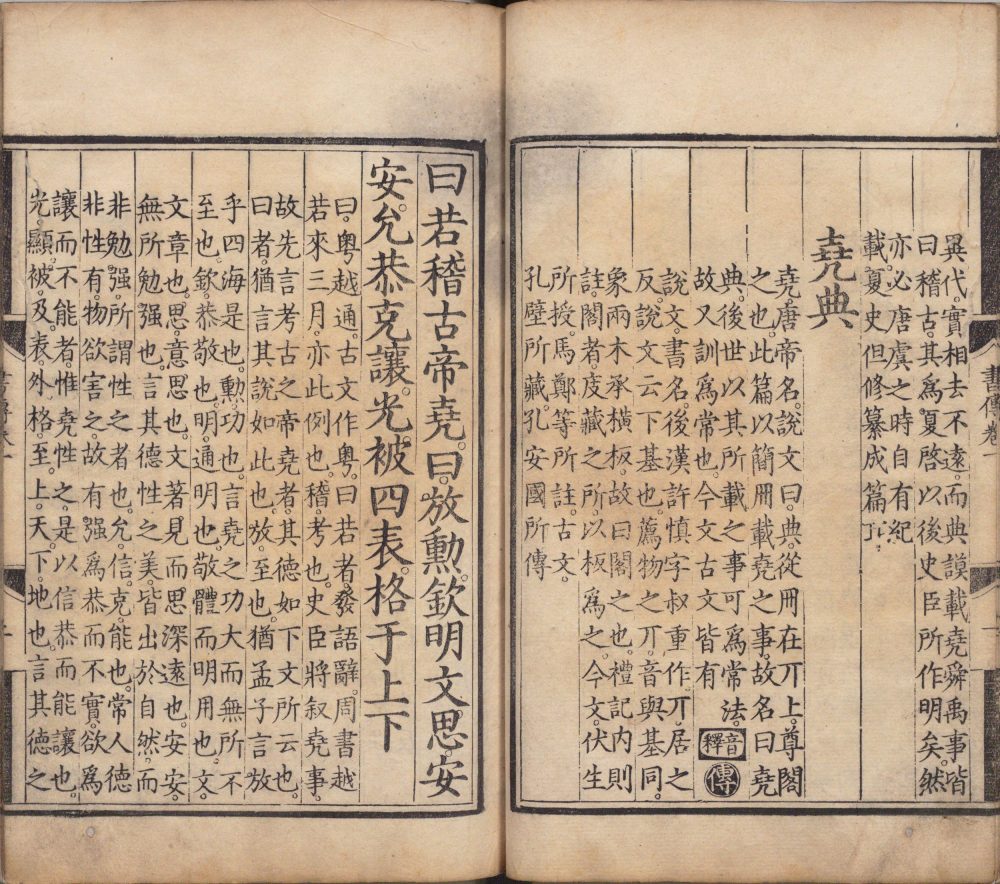 異代。實相去不遠。而典謨載堯舜禹事皆
曰稽古。其爲夏啓以後史臣所作明矣。然
亦必唐虞之時自有紀
載。夏史但修纂成篇
堯典
堯唐帝名。說文曰。典從冊在丌上。尊閣
之也。此篇以簡冊載堯之事。故名曰堯
典。後世以其所載之事可爲常法。
故又訓爲常也。今文古文皆有
音釋
傳
說文。書名。後漢許慎字叔重作。丌。居之
反。說文云。下基也。薦物之丌。音與基同。
象兩木承橫板。故曰閣之也。禮記內則
註。閣者。庋藏之所。以板爲之。今文。伏生
所授。馬鄭等所註。古文。
孔壁所藏。孔安國所傳
書傳卷一
曰若稽古帝堯。曰。放勳。欽明文思。安
安。允恭克讓。光被四表。格于上下
曰。粵越通。古文作粵。曰若者。發語辭。周書越
若來三月。亦此例也。稽。考也。史臣將叙堯事。
故先言考古之帝堯者。其德如下文所云也。
曰者。猶言其說如此也。放。至也。猶孟子言放
乎四海是也。勳。功也。言堯之功大而無所不
至也。欽。恭敬也。明。通明也。敬體而明用也。文。
文章也。思。意思也。文著見而思深遠也。安安。
無所勉强也。言其德性之美。皆出於自然。而
非勉强。所謂性之者也。允。信。克。能也。常人德
非性有。物欲害之。故有强爲恭而不實。欲爲
讓而不能者。惟堯性之。是以信恭而能讓也。
光。顯。被。及。表。外。格。至。上。天。下。地也。言其德之